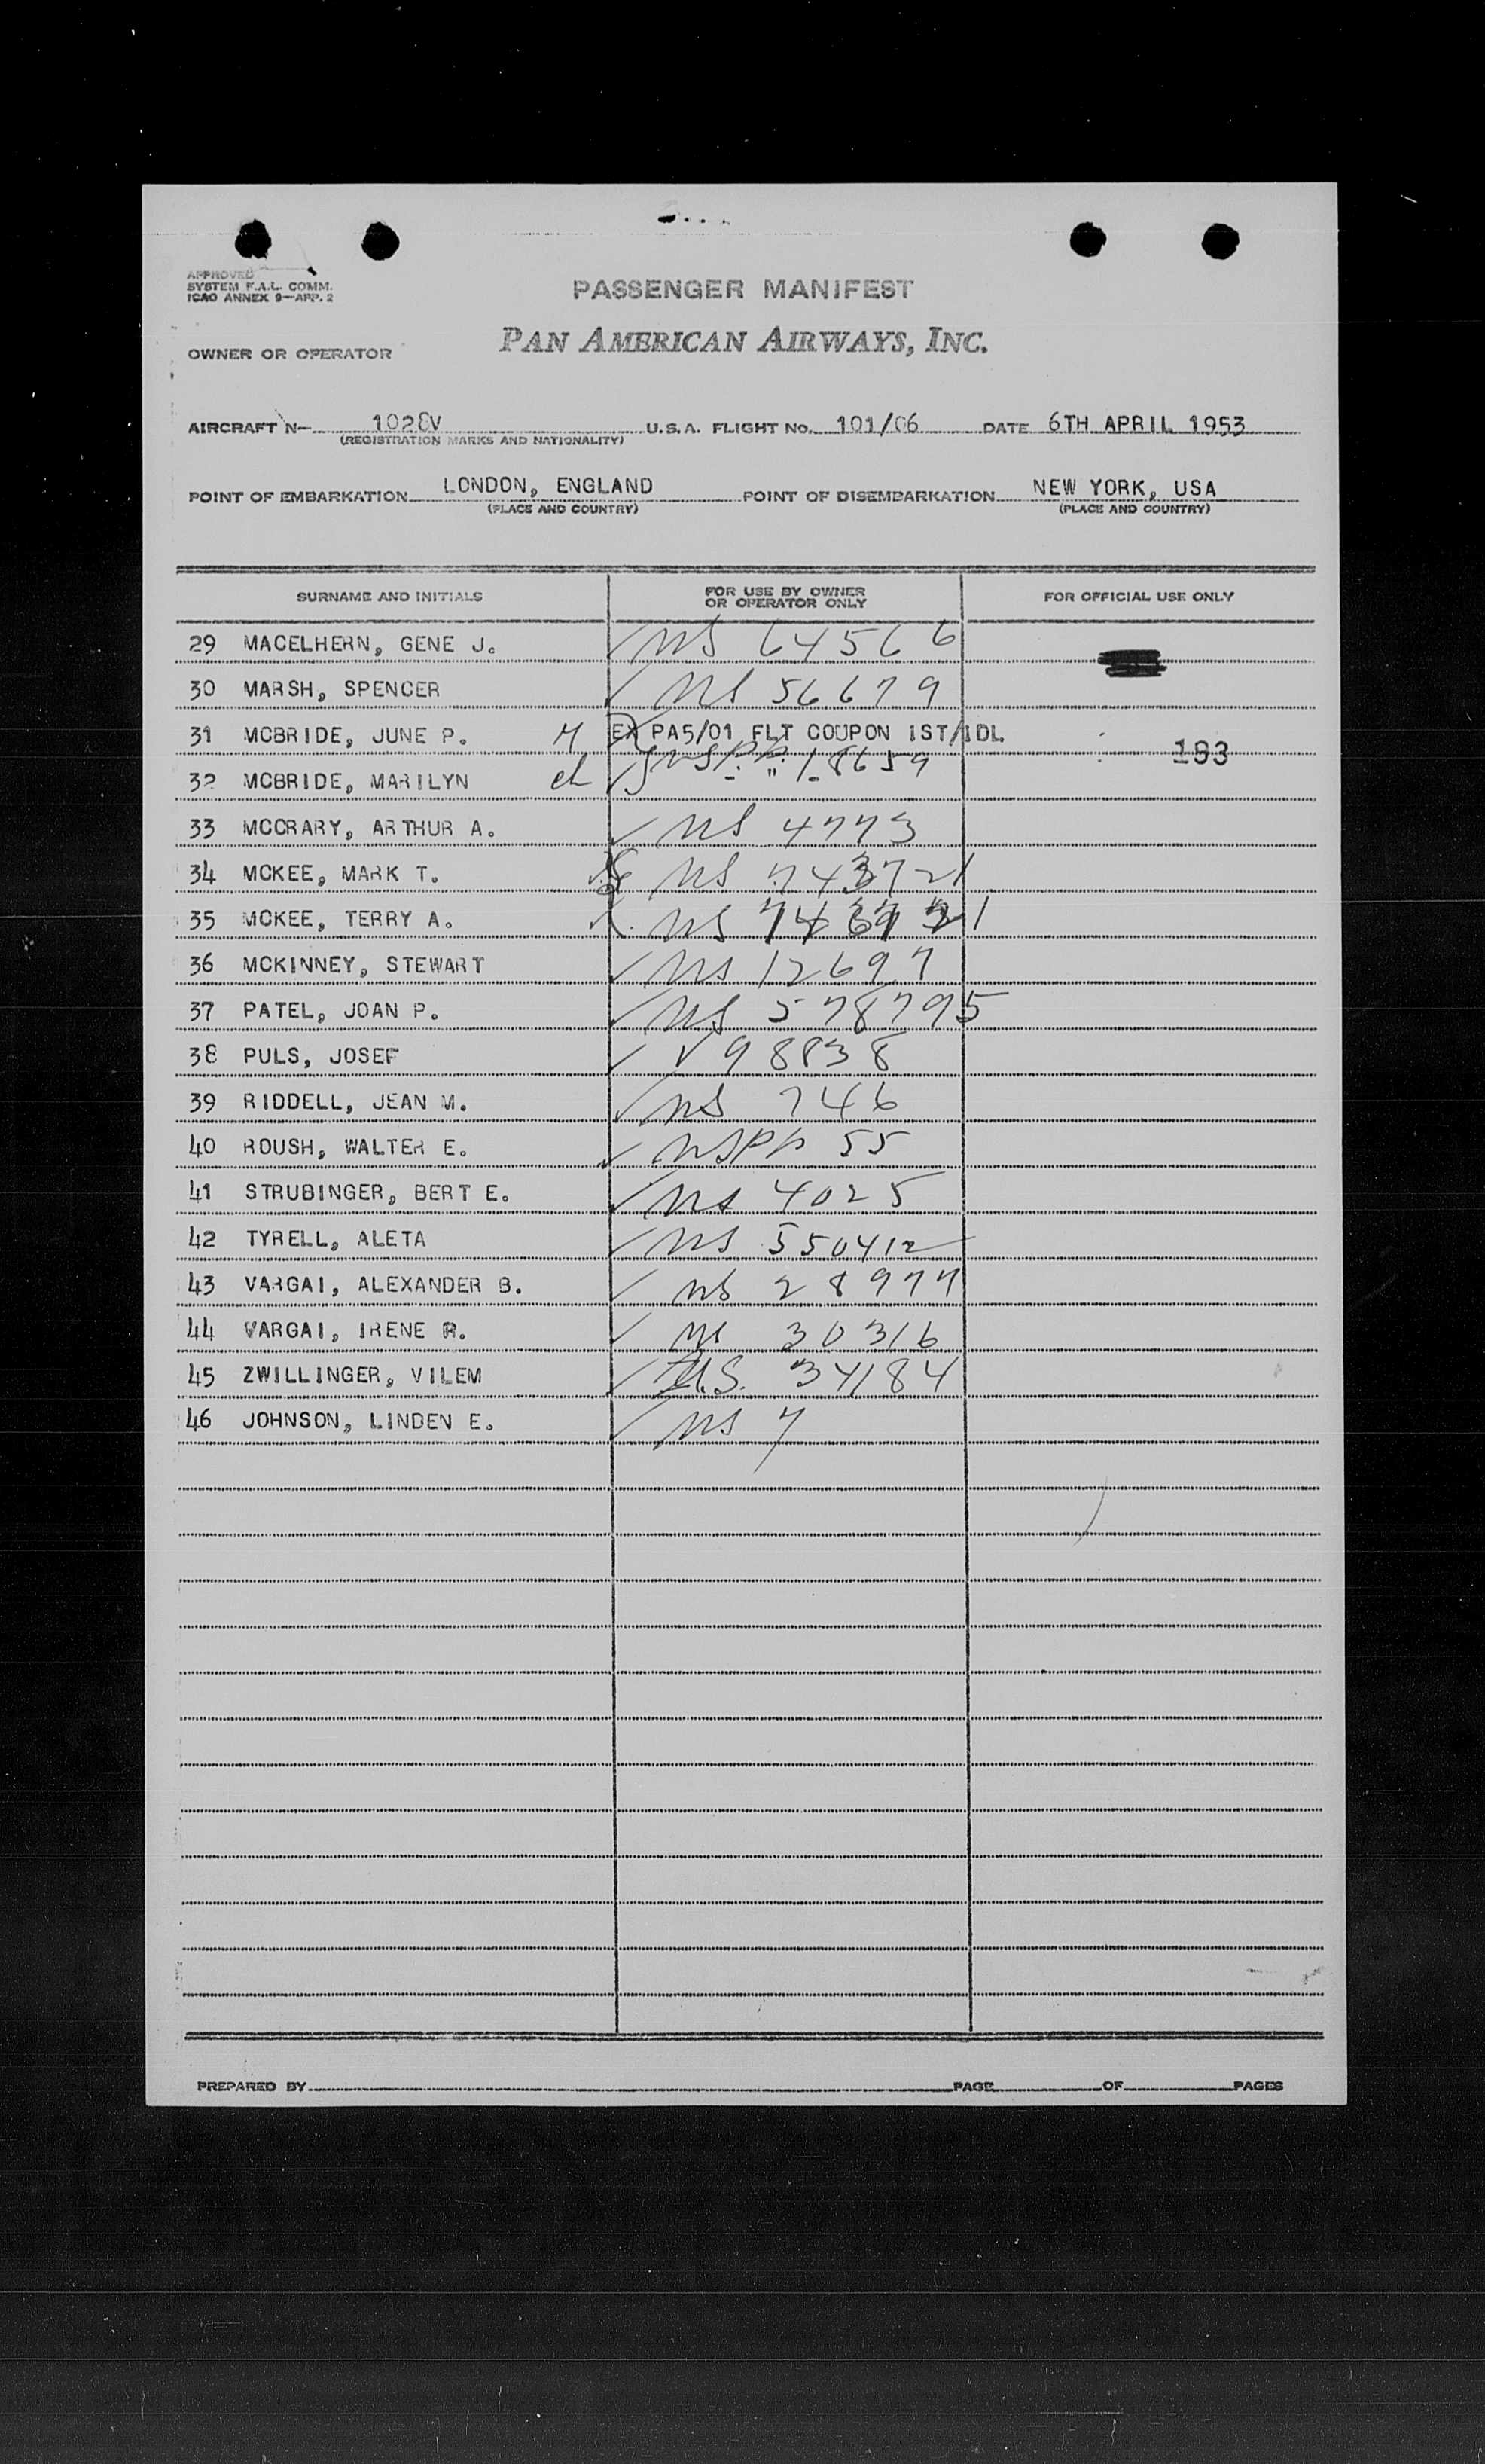 APPROVED
SYSTEM F.A.L. COMM.
ICAO ANNEX 9—APP. 2
PASSENGER MANIFEST
OWNER OR OPERATOR PAN AMERICAN AIRWAYS, INC.
AIRCRAFT N- 1028V U.S.A. FLIGHT NO. 101/06 DATE 6TH APRIL 1953
(REGISTRATION MARKS AND NATIONALITY)
POINT OF EMBARKATION LONDON, ENGLAND POINT OF DISEMBARKATION NEW YORK, USA
(PLACE AND COUNTRY) (PLACE AND COUNTRY)
SURNAME AND INITIALS FOR USE BY OWNER OR OPERATOR ONLY FOR OFFICIAL USE ONLY
29 MACELHERN, GENE J. NS 64566
30 MARSH, SPENCER NS 56679
31 MCBRIDE, JUNE P. M EX PA5/01 FLT COUPON IST/IDL 193
32 MCBRIDE, MARILYN ch NSPP 18659
33 MCCRARY, ARTHUR A. NS 4773
34 MCKEE, MARK T. NS 743721
35 MCKEE, TERRY A. NS
36 MCKINNEY, STEWART NS 12697
37 PATEL, JOAN P. NS 578795
38 PULS, JOSEF V 98838
39 RIDDELL, JEAN M. NS 746
40 ROUSH, WALTER E. NSPP 55
41 STRUBINGER, BERT E. NS 4025
42 TYRELL, ALETA NS 550412
43 VARGAI, ALEXANDER B. NS 28977
44 VARGAI, IRENE R. NS 30316
45 ZWILLINGER, VILEM 34184
46 JOHNSON, LINDEN E. NS 7
PREPARED BY PAGE OF PAGES